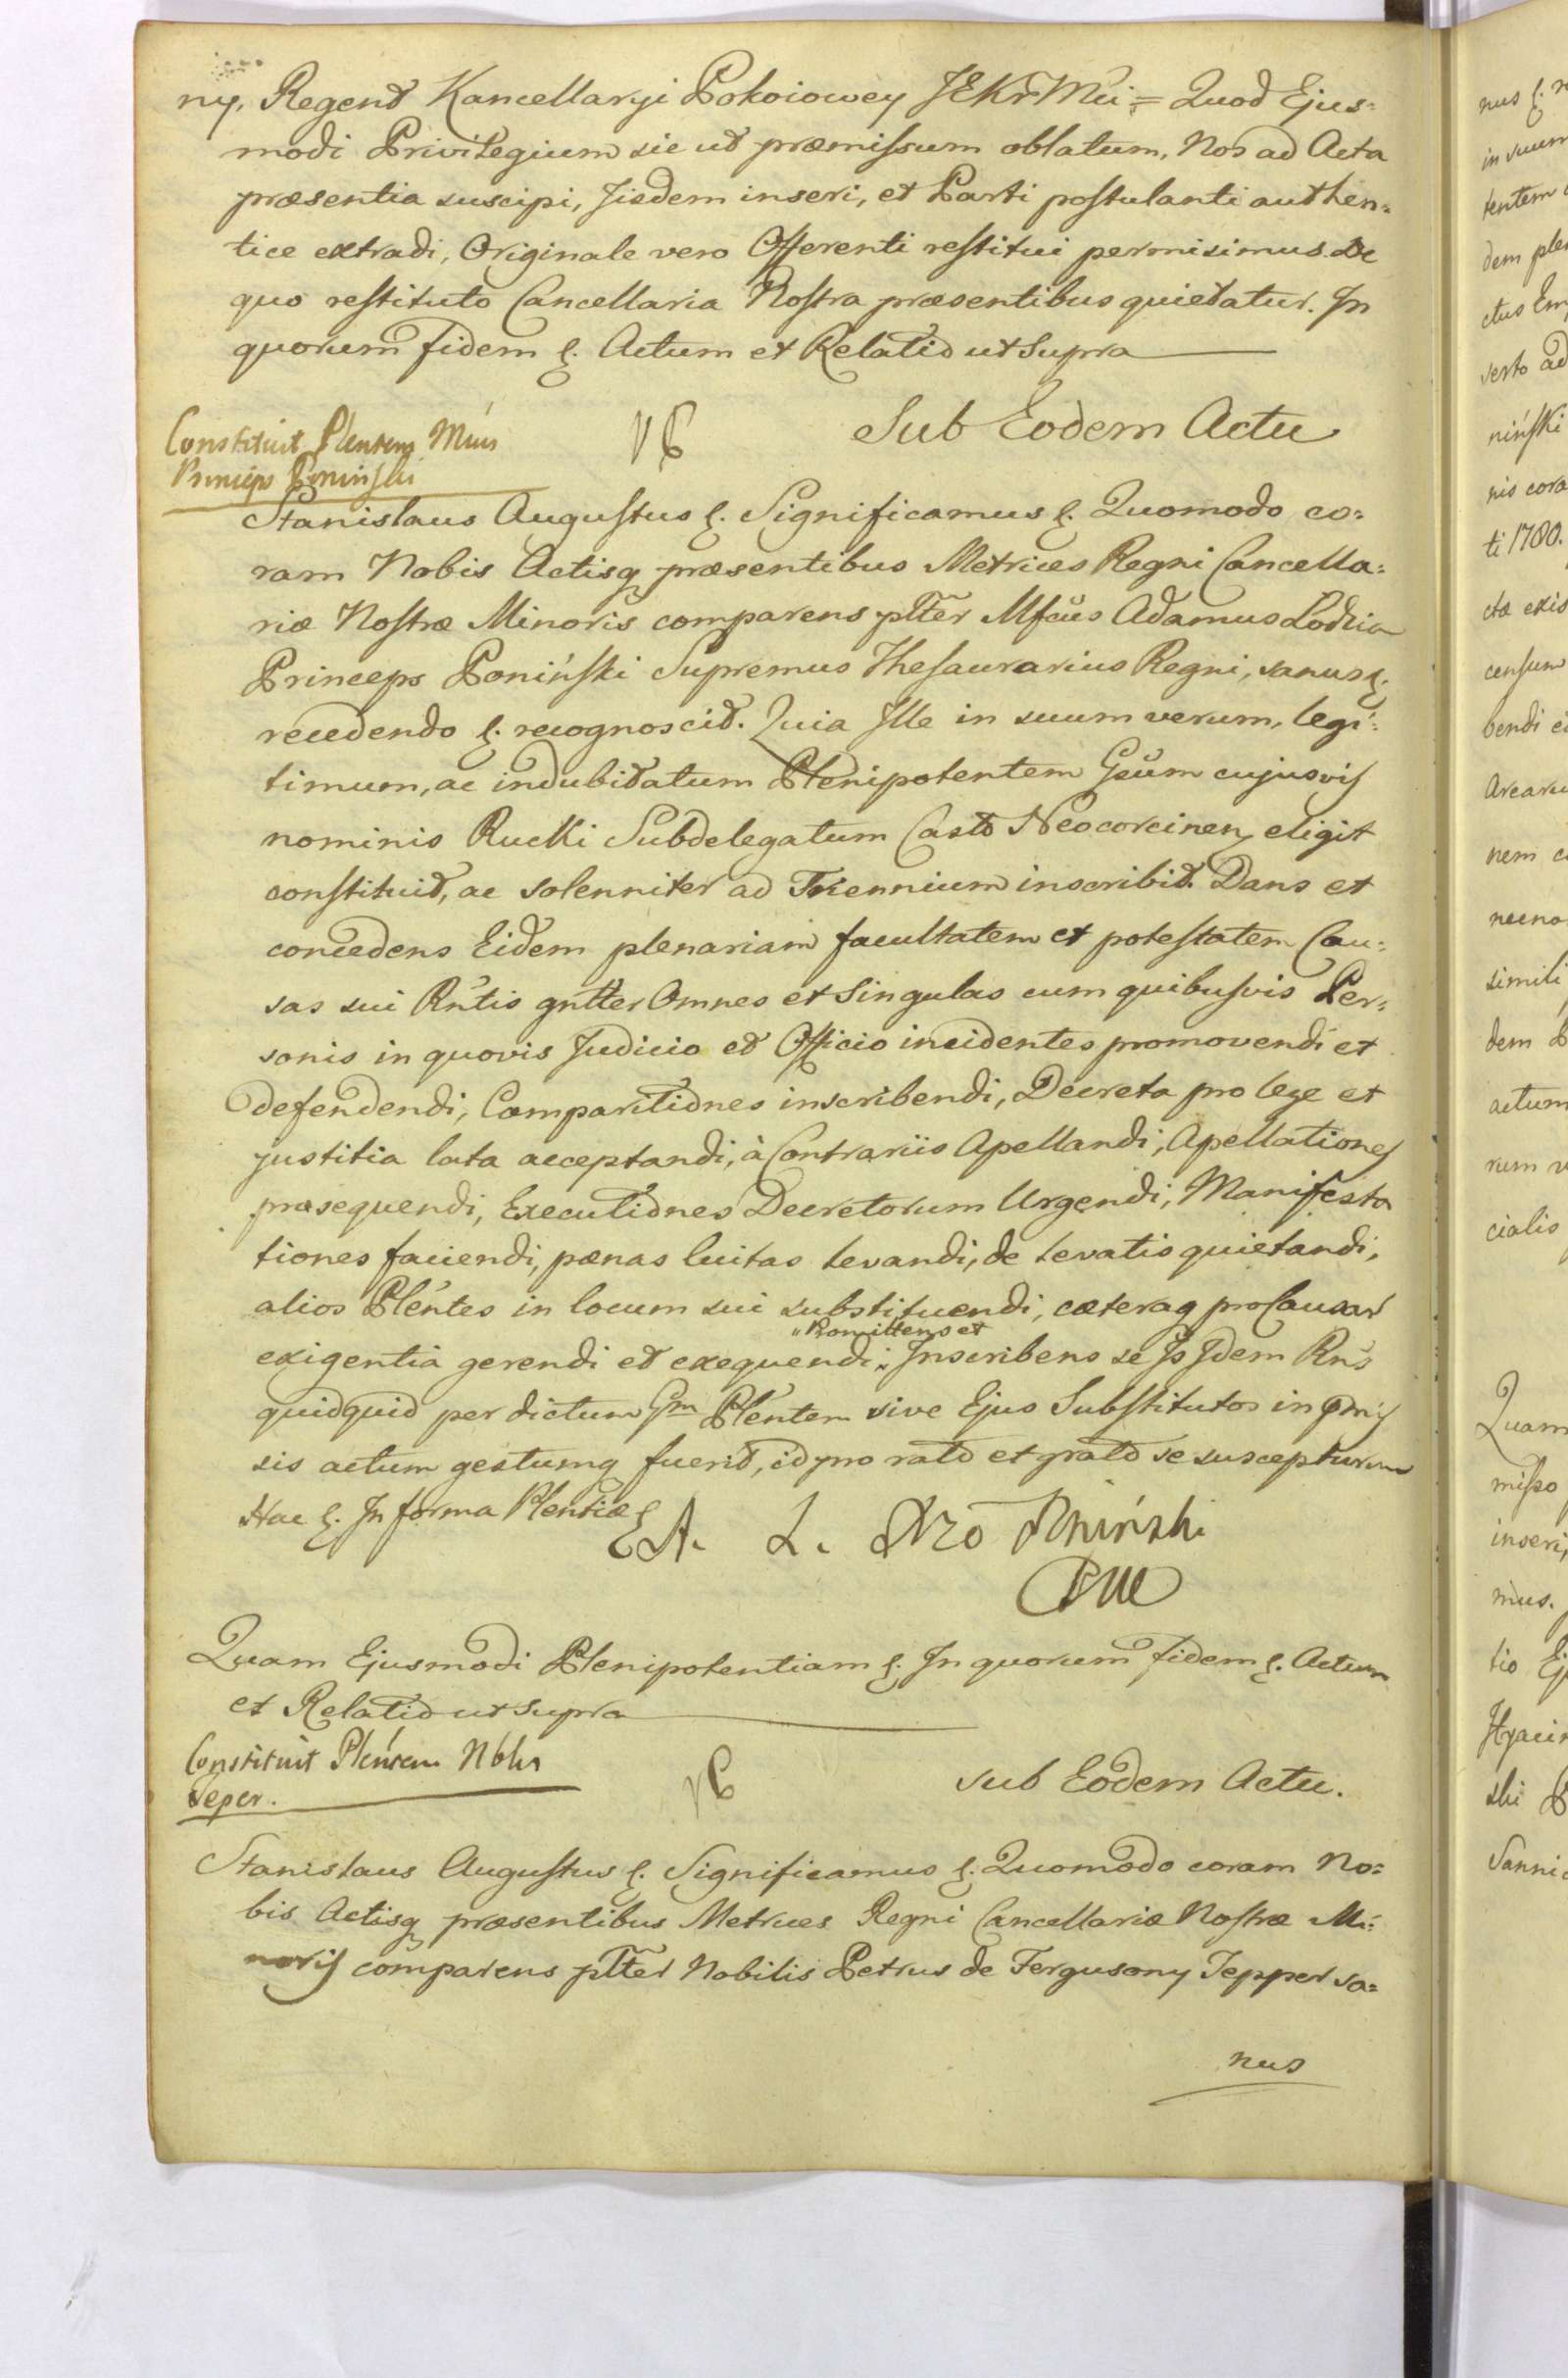 ny, Regent Kancellaryi Pokoiowey JEKr Mci = Quod Ejus=
modi Privilegium sic ut præmissum oblatum, Nos ad Acta
præsentia suscipi, Jisdem inseri, et Parti postulanti authen=
tice extradi, Originale vero Offerenti restitui permisimus. De
quo restituto Cancellaria Nostra præsentibus quietatur. Jn
quorum fidem &. Actum et Relatio ut supra
Constituit Plentem
Princeps Poninski
Sub Eodem Actu
Stanislaus Augustus &. Significamus &. Quomodo co=
ram Nobis Actisq præsentibus Metrices Regni Cancella=
riæ Nostræ Minoris comparens pltter Mfcus Adamus Lodzia
Princeps Poniński Supremus Thesaurarius Regni, sanus &.
recedendo &. recognoscit. Quia Jlle in suum verum, legi=
timum, ac indubitatum Plenipotentem Gsum cujusvis
nominis Rucki Subdelegatum Castr Neocorcinen, eligit
constituit, ac solenniter ad Triennium inscribit. Dans et
concedens Eidem plenariam facultatem et potestatem Cau=
sas sui Rntis gnltter Omnes et Singulas cum quibusvis Per=
sonis in quovis Judicio et Officio incidentes promovendi et
defendendi, Comparitiones inscribendi, Decreta pro lege et
justitia lata acceptandi, à Contrariis Apellandi, Apellationes
prosequendi, Executiones Decretorum Urgendi, Manifesta
tiones faciendi, pœnas luitas levandi, de levatis quietandi,
alios Pléntes in locum sui substituendi, cæteraq pro Causar
"Promittens et
exigentia gerendi et exequendi. Jnscribens se Js Jdem Rns
quidquid per dictum Gm Pléntem sive Ejus Substitutos in pmis
sis actum gestumq fuerit, id pro rato et grato se suscepturum
Hac &. Jn forma Plentiæ &
A. L. Poninski
Quam Ejusmodi Plenipotentiam &. Jn quorum fidem &. Actum
et Relatio ut supra
Constituit Pléntem Nblis
Teper.
sub Eodem Actu.
Stanislaus Augustus &. Significamus &. Quomodo coram No=
bis Actisq præsentibus Metrices Regni Cancellariæ Nostræ Mi=
noris comparens pltter Nobilis Petrus de Fergusony Tepper sa=
nus